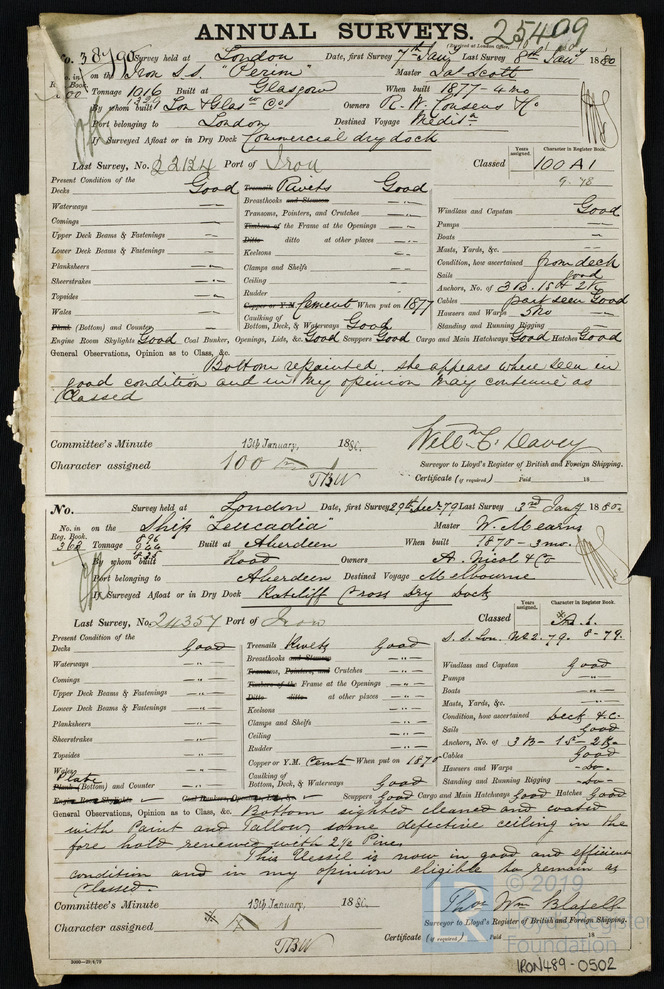 ANNUAL SURVEYS. 25499
(Received at London Office,
No. Survey held at London Date, first Survey 7th Jany Last Survey 8th Jany 1880
No. in Reg. Book. on the Iron S.S. "Perim" Master Jas Scott
Tonnage 1016 Built at Glasgow When built 1877 - 4 mo
1329
By whom built Lon & Glasw Co Owners R. W. Cousens & Co
Port belonging to London Destined Voyage Medit.n
If Surveyed Afloat or in Dry Dock Commercial dry dock
Years assigned. Character in Register Book.
Last Survey, No. 22124 Port of Iron Classed 100 A1
9. 78
Present Condition of the
Decks Good Treenails Rivets Good
Waterways Breasthooks and Stemson Windlass and Capstan Good
Comings Transoms, Pointers, and Crutches Pumps
Upper Deck Beams & Fastenings Timbers of the Frame at the Openings Boats
Lower Deck Beams & Fastenings Ditto ditto at other places Masts, Yards, &c.
Planksheers Keelsons Condition, how ascertained from deck
Sheerstrakes Clamps and Shelfs Sails good
Topsides Ceiling Anchors, No. of 3 B. 1 St 2 K
Wales Rudder Cables part seen Good
Copper or Y.M. Cement When put on 1877 Hawsers and Warps
Plank (Bottom) and Counter Caulking of Bottom, Deck, & Waterways Good Standing and Running Rigging
Engine Room Skylights Good Coal Bunker, Openings, Lids, &c. Good Scuppers Good Cargo and Main Hatchways Good Hatches Good
General Observations, Opinion as to Class, &c.
Bottom repainted. She appears where seen in
good condition and in my opinion may continue as
Classed
Committee's Minute 13th January, 1880.
Character assigned 100 A 1
TBW
Surveyor to Lloyd's Register of British and Foreign Shipping.
Certificate (if required) Paid 18
No. Survey held at London Date, first Survey 29th Dec 79 Last Survey 3rd Jany 1880.
No. in Reg. Book. on the Ship "Leucadia" Master W. Mearns
362 Tonnage 896 Built at Aberdeen When built 1870 - 3 mo.
By whom built Hood Owners A. Nicol & Co
Port belonging to Aberdeen Destined Voyage Melbourne
If Surveyed Afloat or in Dry Dock Ratcliff Cross Dry Dock
Years assigned. Character in Register Book.
Last Survey, No. 24357 Port of Iron Classed A 1.
S. S. Lon. No 2. 79. 8-79.
Present Condition of the
Decks Good Treenails Rivets Good
Waterways Breasthooks and Stemson Windlass and Capstan Good
Comings Transoms, Pointers, and Crutches Pumps
Upper Deck Beams & Fastenings Timbers of the Frame at the Openings Boats
Lower Deck Beams & Fastenings Ditto ditto at other places Masts, Yards, &c.
Planksheers Keelsons Condition, how ascertained Deck &c.
Sheerstrakes Clamps and Shelfs Sails Good
Topsides Ceiling Anchors, No. of 3 B - 1 S - 2 K.
Wales Rudder Cables Good
Plate Copper or Y.M. Cemt When put on 1870 Hawsers and Warps Do
Plank (Bottom) and Counter Caulking of Bottom, Deck, & Waterways Good Standing and Running Rigging Do
Engine Room Skylights Coal Bunkers, Openings, Lids, &c. Scuppers Good Cargo and Main Hatchways Good Hatches Good
General Observations, Opinion as to Class, &c. Bottom sighted cleaned and coated
with Paint and Tallow, some defective ceiling in the
fore hold renewed with 2½ Pine.
This Vessel is now in good and efficient
condition and in my opinion eligible to remain as
Classed.
Committee's Minute 13th January, 1880.
Character assigned A 1
TBW
Surveyor to Lloyd's Register of British and Foreign Shipping.
Certificate (if required) Paid 18
© 2019
Lloyd's Register
Foundation
IRON489-0502